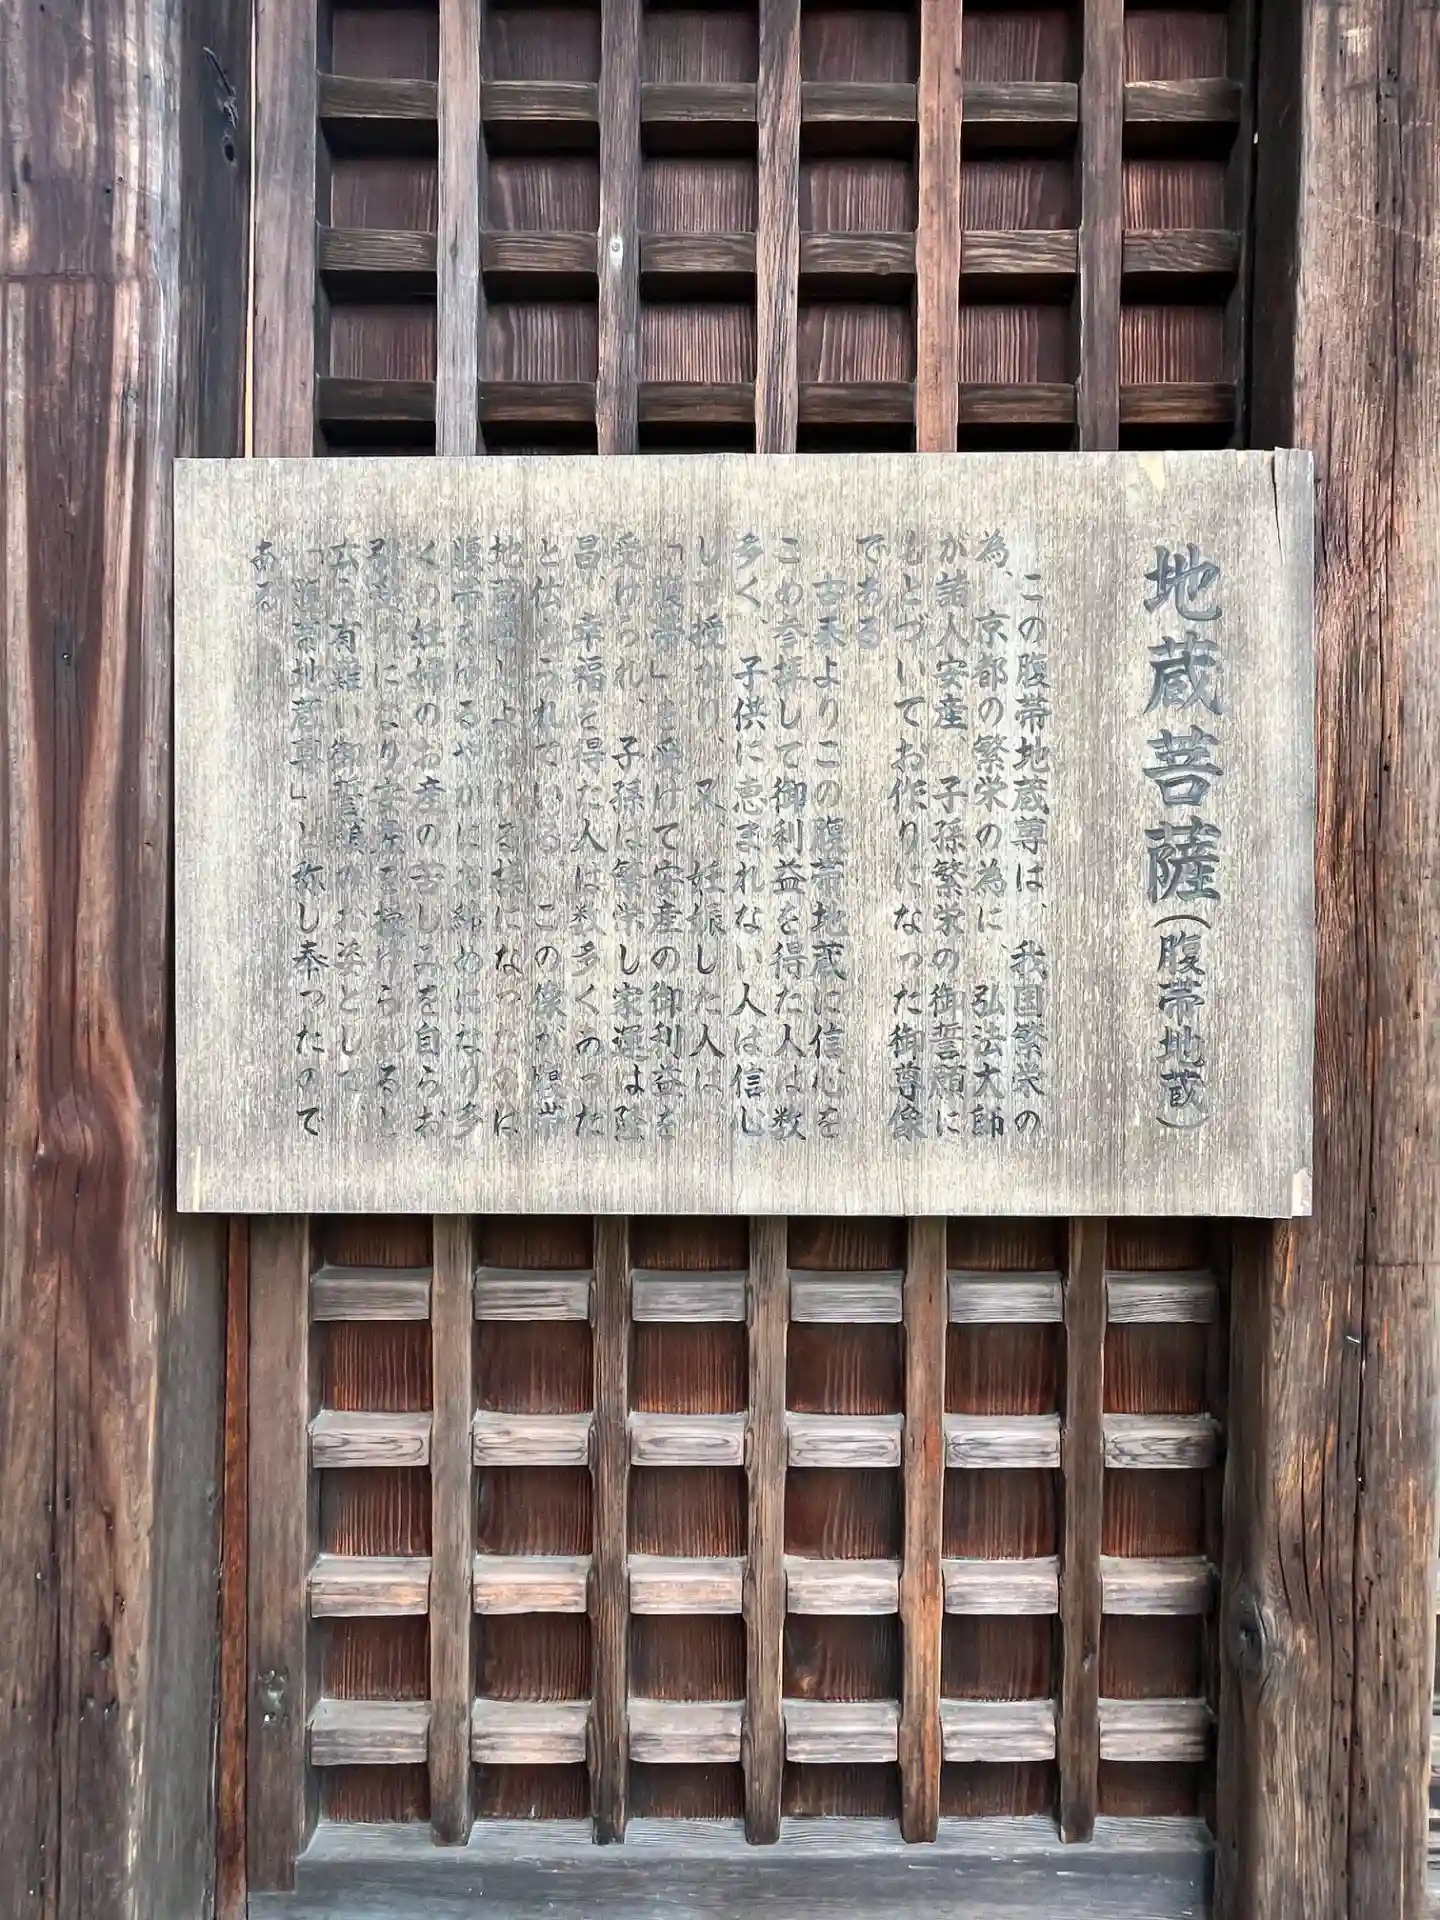 地蔵菩薩(腹帯地蔵)
この腹帯地蔵尊は、我国繁栄の
為、京都の繁栄の為に、弘法大師
が諸人安産、子孫繁栄の御誓願に
もとづいてお作りになった御尊像
である
古来よりこの腹帯地蔵に信心を
こめ参拝して御利益を得た人は数
多く、子供に恵まれない人は信じ
して授かり、又、妊娠した人は、
「腹帯」を受けて安産の御利益を
受けられ、子孫は繁栄し家運は隆
昌、幸福を得た人は数多くあった
と伝えられている。この像が腹帯
地蔵尊と
になったのは
腹帯を
お締めになり多
くの妊婦のお産の苦しみを自らお
になり安産を授けられると
云う有難い御誓願のお姿として、
「腹帯地蔵尊」と称し奉ったので
ある